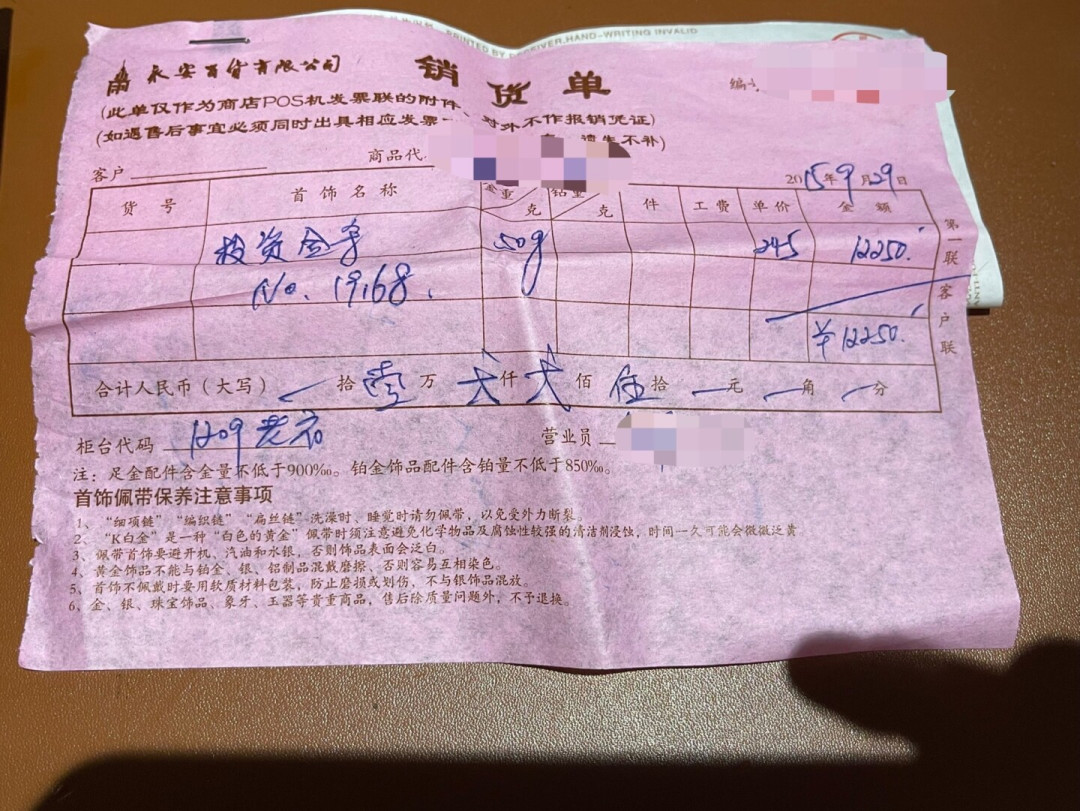 PRINTED BY RECEIVER,HAND-WRITING INVALID
永安百货有限公司 销货单 编
(此单仅作为商店POS机发票联的附件、对外不作报销凭证)
(如遇售后事宜必须同时出具相应发票 遗失不补)
客户 商品代
2015年9月29日
货号 首饰名称 金重 克 钻重 克 件 工费 单价 金额
投资金条 50g 245 12250.
No. 19168.
¥12250.
第一联 客户联
合计人民币(大写) 拾 壹 万 仟 佰 伍 拾 元 角 分
柜台代码 1209 营业员
注:足金配件含金量不低于900‰。铂金饰品配件含铂量不低于850‰。
首饰佩带保养注意事项
1、“细项链”“编织链”“扁丝链”洗澡时、睡觉时请勿佩带,以免受外力断裂。
2、“K白金”是一种“白色的黄金”佩带时须注意避免化学物品及腐蚀性较强的清洁剂浸蚀,时间一久可能会微微泛黄
3、佩带首饰要避开机、汽油和水银,否则饰品表面会泛白。
4、黄金饰品不能与铂金、银、铝制品混戴磨擦、否则容易互相染色。
5、首饰不佩戴时要用软质材料包装,防止磨损或划伤、不与银饰品混放。
6、金、银、珠宝饰品、象牙、玉器等贵重商品,售后除质量问题外,不予退换。